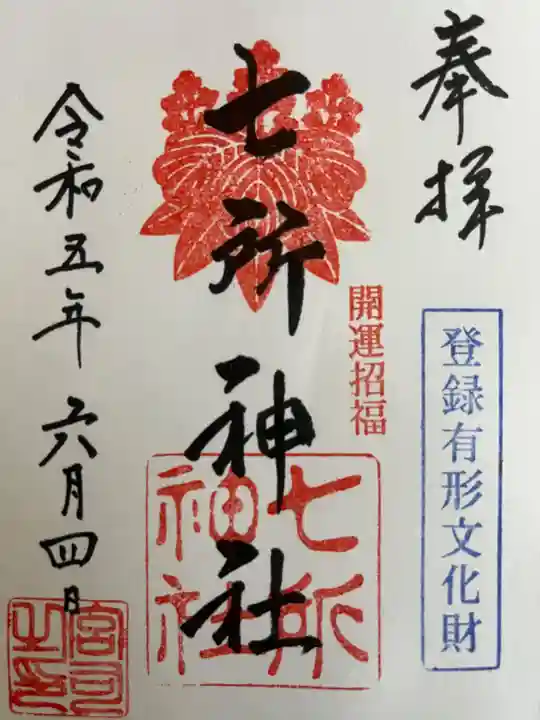 奉拝
登録有形文化財
開運招福
七所神社
七所
神社
令和五年六月四日
宮司
之印